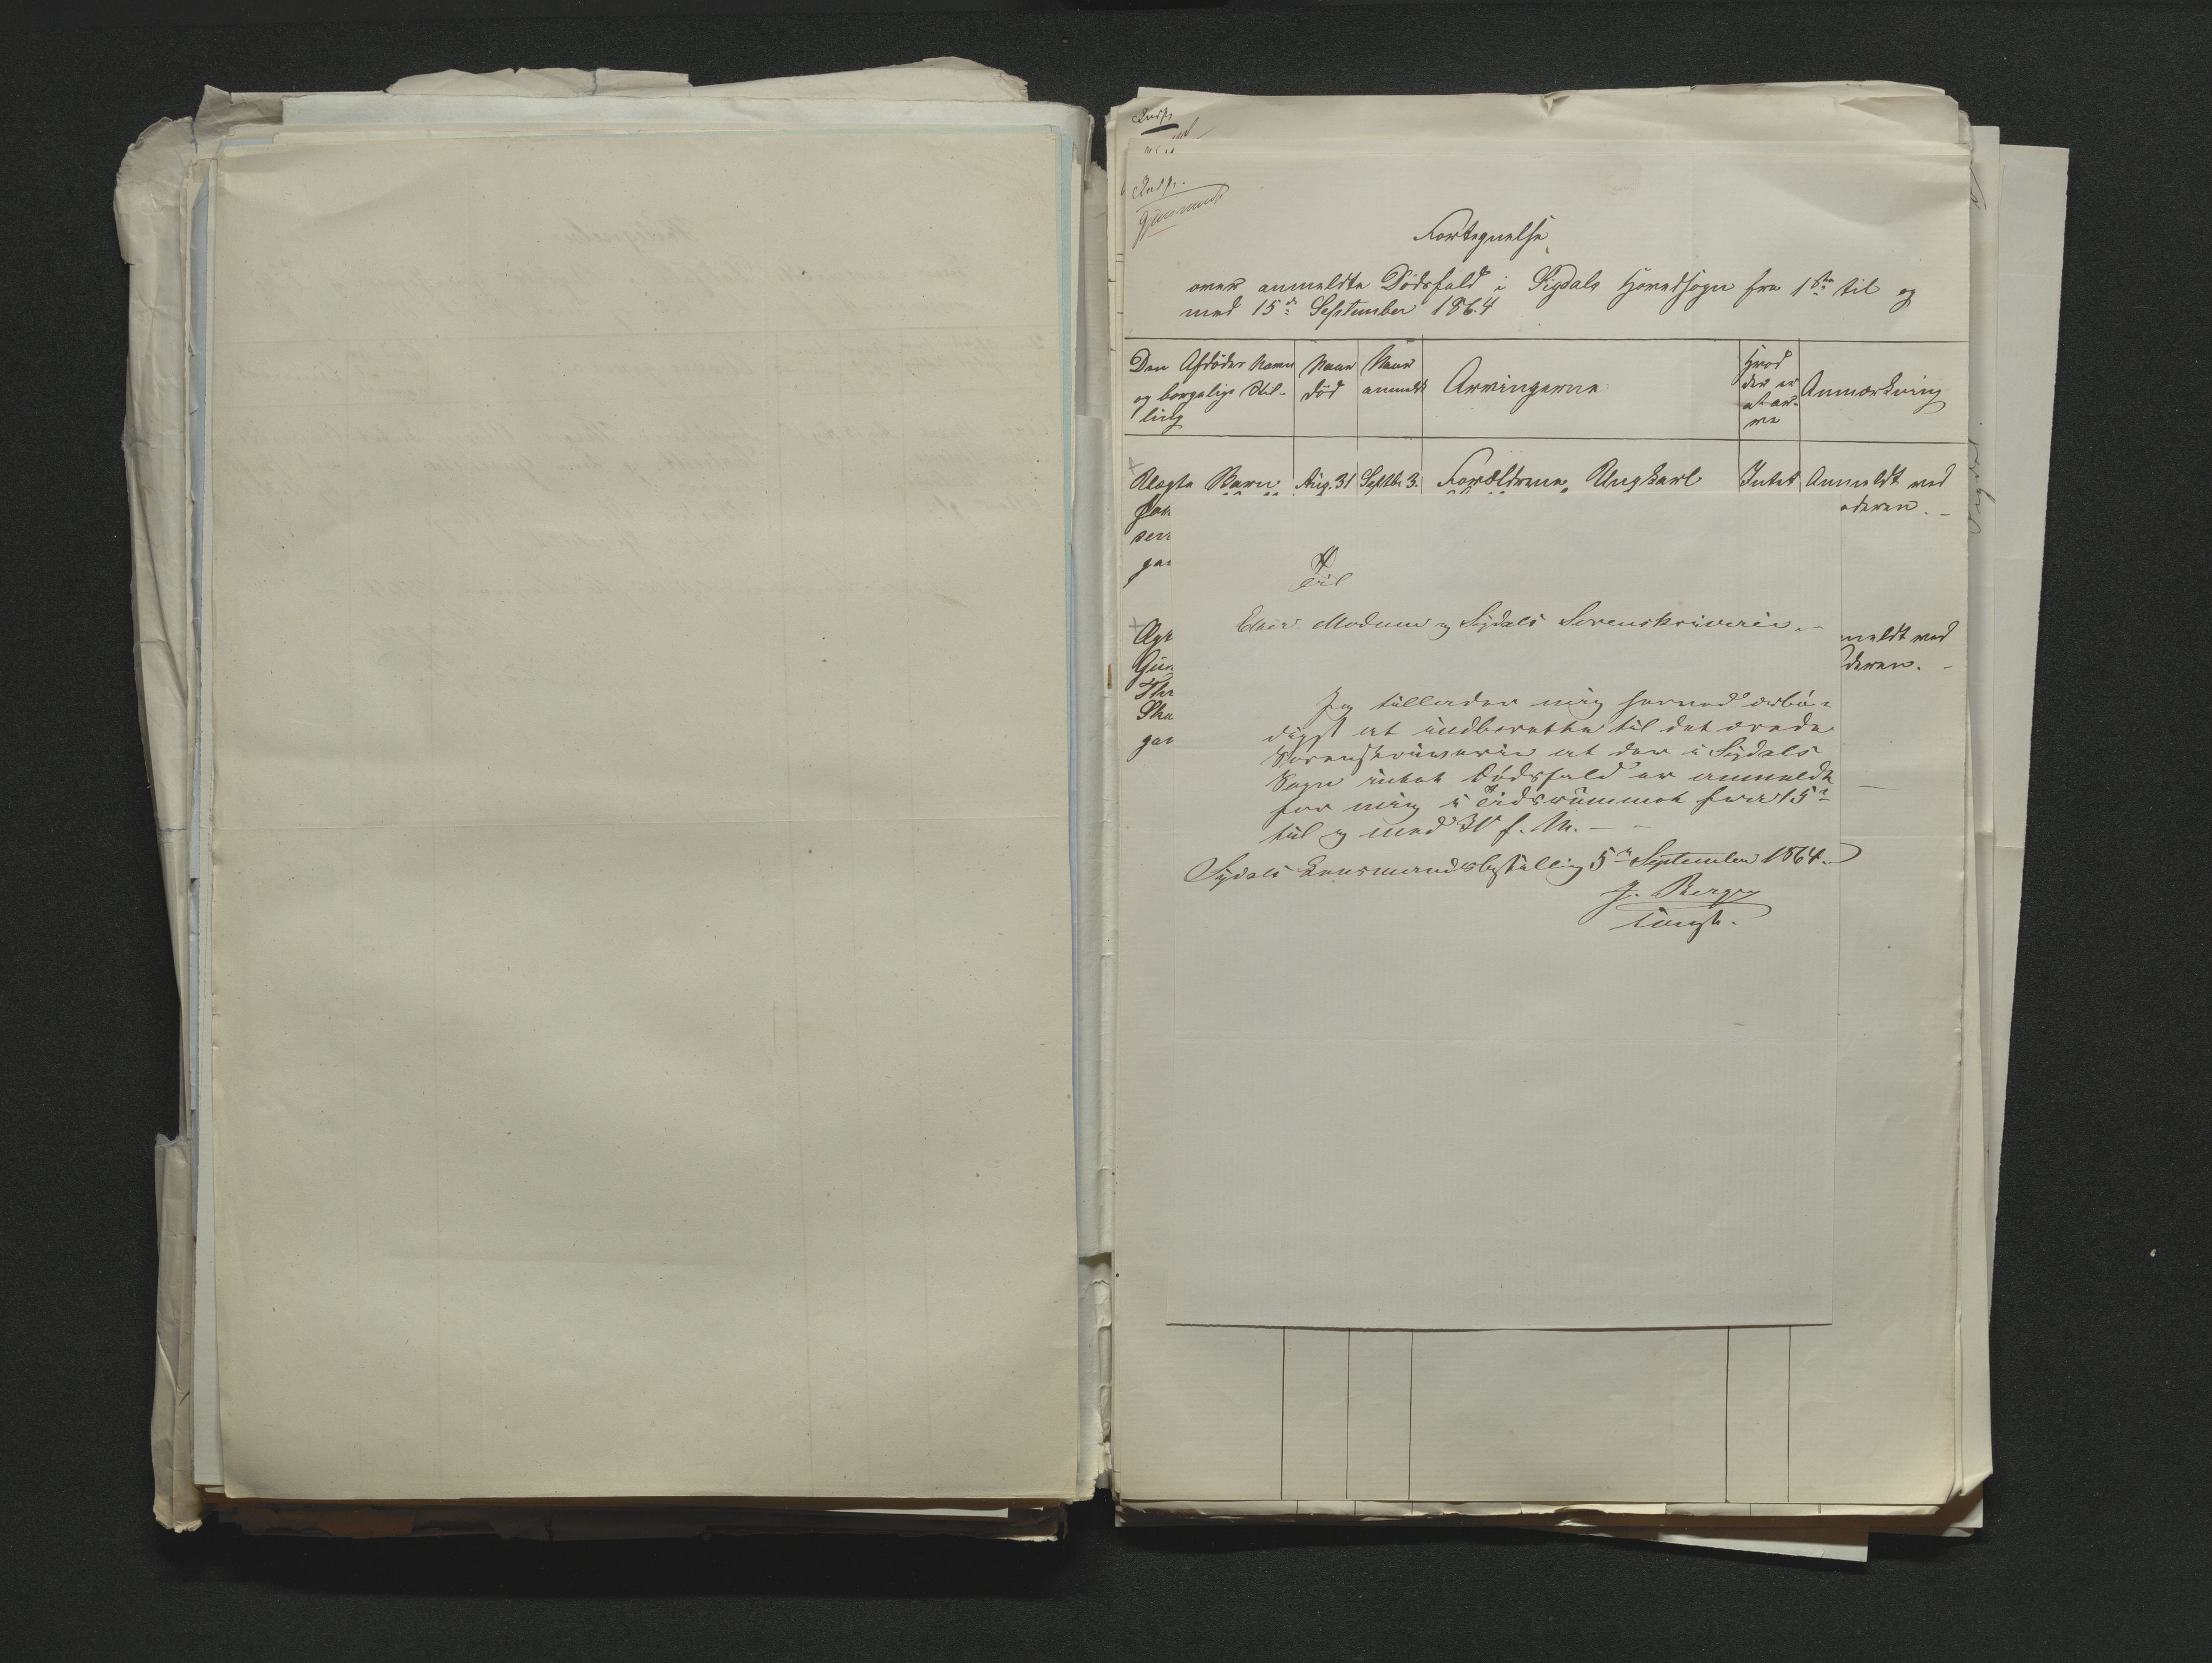 Indf.
Indf.
Gjennemg.
Fortegnelse
over anmeldte Dödsfald i Sigdals Hovedsogn fra 1ste til og
med 15de September 1864
Den Afdödes Navn
og borgelige Stil-
ling
Naar
död
Naar
anmeldt
Arvingerne
Hvad
der er
at ar-
ve
Anmærkning
Uægte Barn
Aug. 31
Septbr 3.
Forældrene, Ungkarl
Intet
Anmeldt ved
sen
gar
Til
Eker Modum og Sigdals Sorenskriveri.
meldt ved
Gun
Ska
gar
Jeg tillader mig herved ærbö-
digst at indberette til det ærede
Sorenskriveri at der i Sigdals
Sogn intet Dödsfald er anmeldt
for mig i Tidsrummet fra 15de
til og med 31 f. M. –
Sigdals Lensmandsbestilling 5te September 1864.
J. Berg
const.